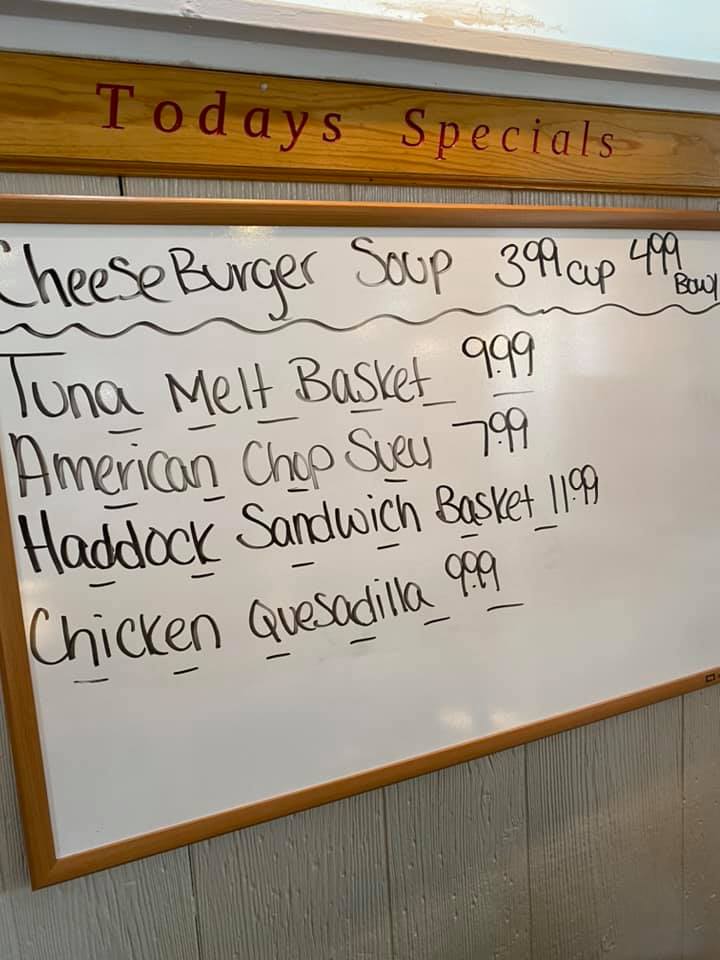 Todays Specials
CheeseBurger Soup 3.99 cup 4.99 Bowl
Tuna Melt Basket 9.99
American Chop Suey 7.99
Haddock Sandwich Basket 11.99
Chicken Quesadilla 9.99